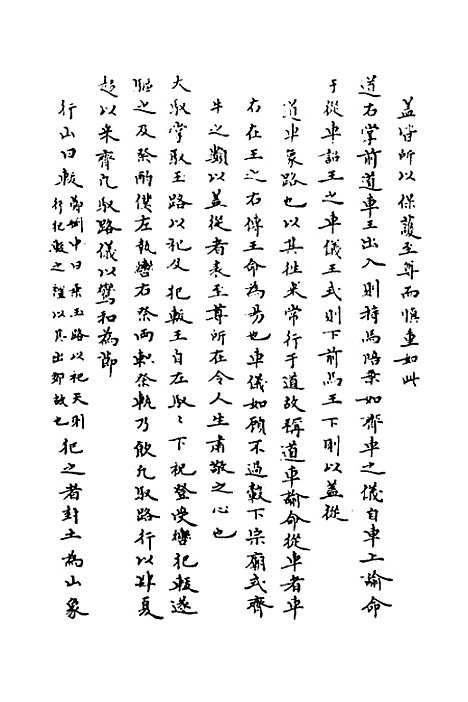 蓋皆所以保護至尊而慎重如此
道右掌前道車王出入則持馬陪乗如齊車之儀自車上諭命
于從車詔王之車儀王式則下前馬王下則以蓋從
道車象路也以其往来常行于道故稱道車諭命從車者車
右在王之右傳王命為易也車儀如顧不過轂下宗廟式齊
牛之類以蓋從者表至尊所在令人生肅敬之心也
大馭掌馭玉路以祀及犯軷王自左馭馭下祝登受轡犯軷遂
驅之及祭酌僕左執轡右祭兩軹祭軌乃飲凡馭路行以肆夏
趨以采齊凡馭路儀以鸞和為節
行山曰軷鄭剛中曰乗玉路以祀天則
行犯軷之禮以其出郊故也犯之者封土為山象